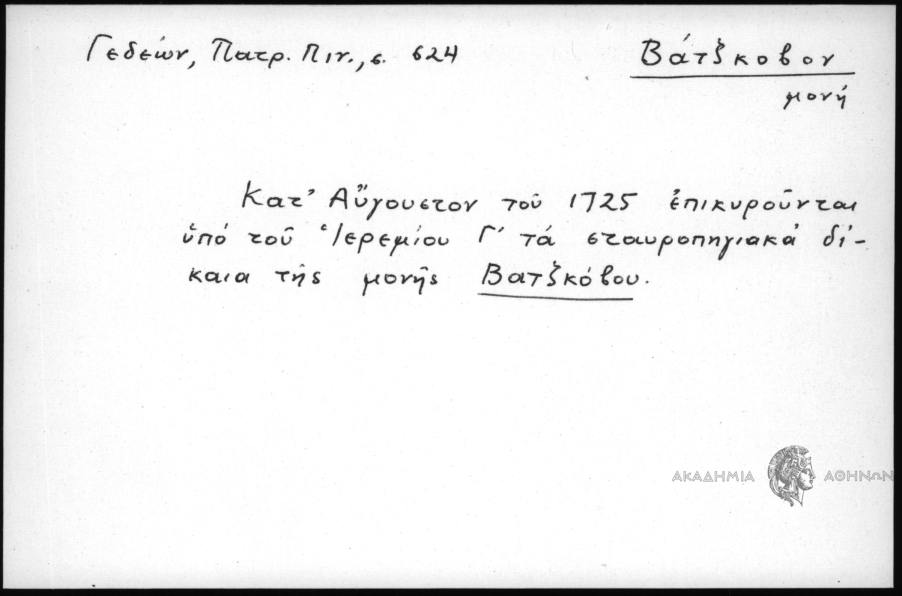 Γεδεών, Πατρ. Πιν., σ. 624
Βάτζκοβον
μονή
Κατ' Αὔγουστον τοῦ 1725 ἐπικυροῦνται
ὑπό τοῦ Ἱερεμίου Γ' τά σταυροπηγιακά δί-
καια τῆς μονῆς Βατζκόβου.
ΑΚΑΔΗΜΙΑ ΑΘΗΝΩΝ